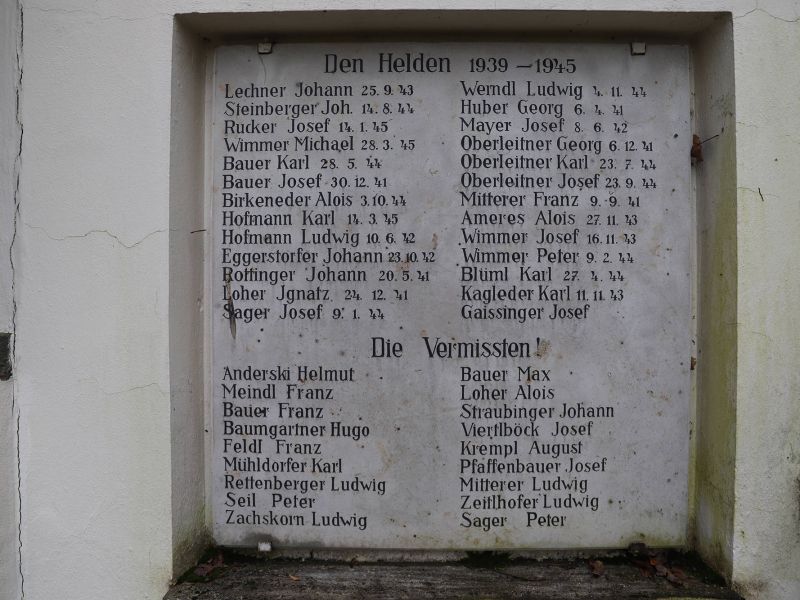 Den Helden 1939 – 1945
Lechner Johann 25. 9. 43
Steinberger Joh. 14. 8. 44
Rucker Josef 14. 1. 45
Wimmer Michael 28. 3. 45
Bauer Karl 28. 5. 44
Bauer Josef 30. 12. 41
Birkeneder Alois 3. 10. 44
Hofmann Karl 14. 3. 45
Hofmann Ludwig 10. 6. 42
Eggerstorfer Johann 23. 10. 42
Rottinger Johann 20. 5. 41
Loher Jgnatz 24. 12. 41
Sager Josef 9. 1. 44
Werndl Ludwig 4. 11. 44
Huber Georg 6. 4. 41
Mayer Josef 8. 6. 42
Oberleitner Georg 6. 12. 41
Oberleitner Karl 23. 7. 44
Oberleitner Josef 23. 9. 44
Mitterer Franz 9. 9. 41
Ameres Alois 27. 11. 43
Wimmer Josef 16. 11. 43
Wimmer Peter 9. 2. 44
Blüml Karl 27. 4. 44
Kagleder Karl 11. 11. 43
Gaissinger Josef
Die Vermissten!
Anderski Helmut
Meindl Franz
Bauer Franz
Baumgartner Hugo
Feldl Franz
Mühldorfer Karl
Rettenberger Ludwig
Seil Peter
Zachskorn Ludwig
Bauer Max
Loher Alois
Straubinger Johann
Viertlböck Josef
Krempl August
Pfaffenbauer Josef
Mitterer Ludwig
Zeitlhofer Ludwig
Sager Peter